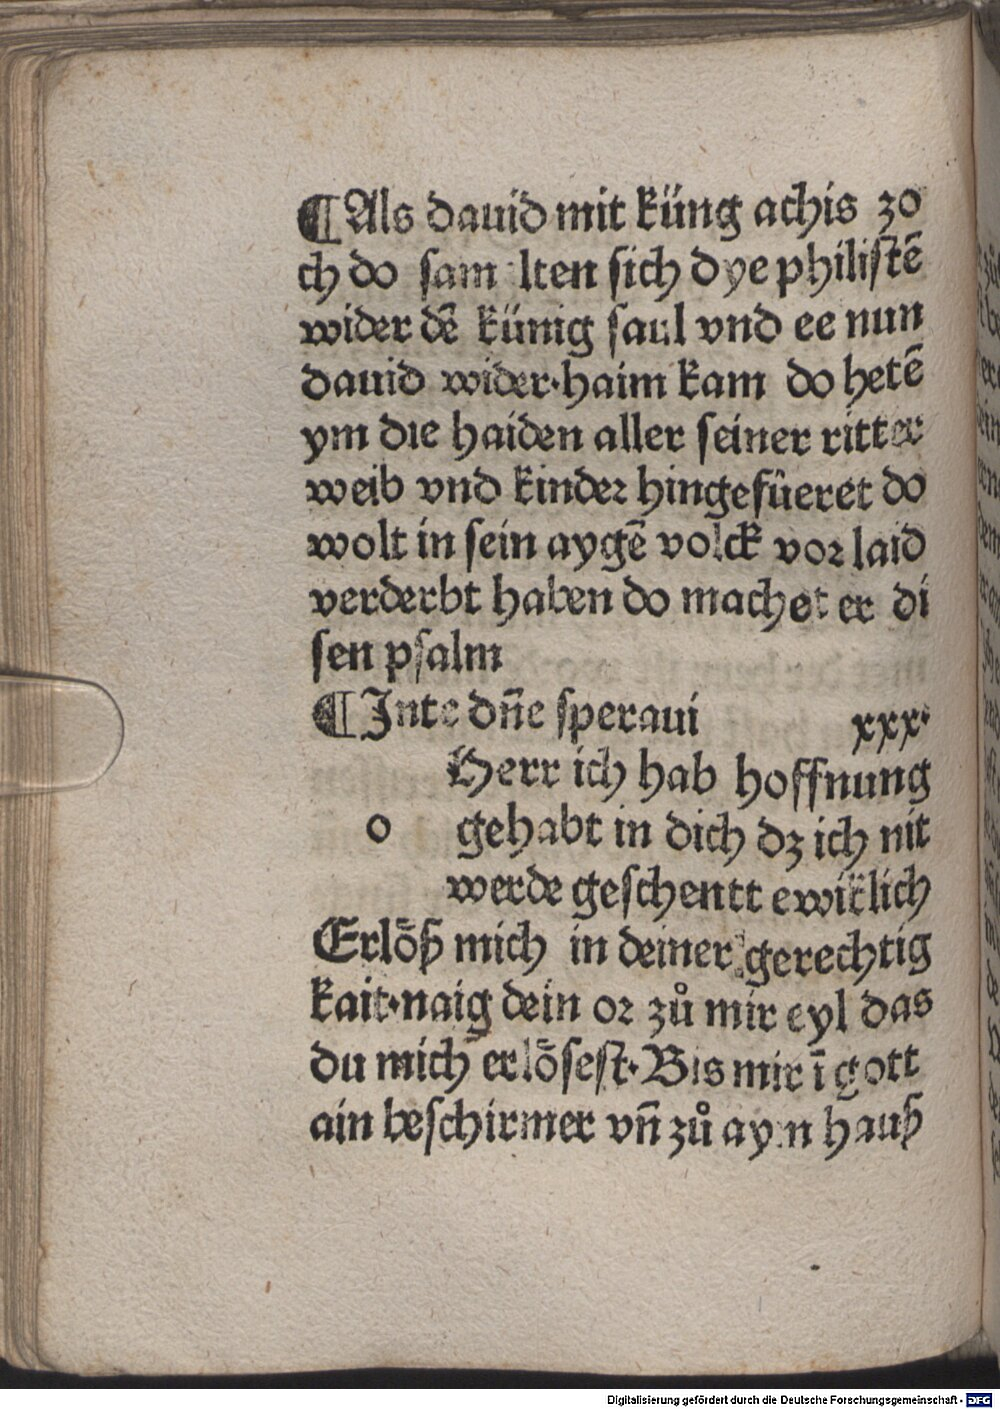 ¶Als dauid mit küng achis zo
ch do sam lten sich dye philistē
wider dē künig saul vnd ee nun
dauid wider·haim kam do hetē
ym die haiden aller seiner ritter
weib vnd kinder hingefüeret do
wolt in sein aygē volck vor laid
verderbt haben do machet er di
sen psalm
¶Inte dn̄e speraui xxx·
Herr ich hab hoffnung
o gehabt in dich dz ich nit
werde geschentt ewiklich
Erlöß mich in deiner gerechtig
kait·naig dein or zů mir eyl das
du mich erlösest·Bis mir ī gott
ain beschirmer vn̄ zů aym hauß
Digitalisierung gefördert durch die Deutsche Forschungsgemeinschaft - DFG